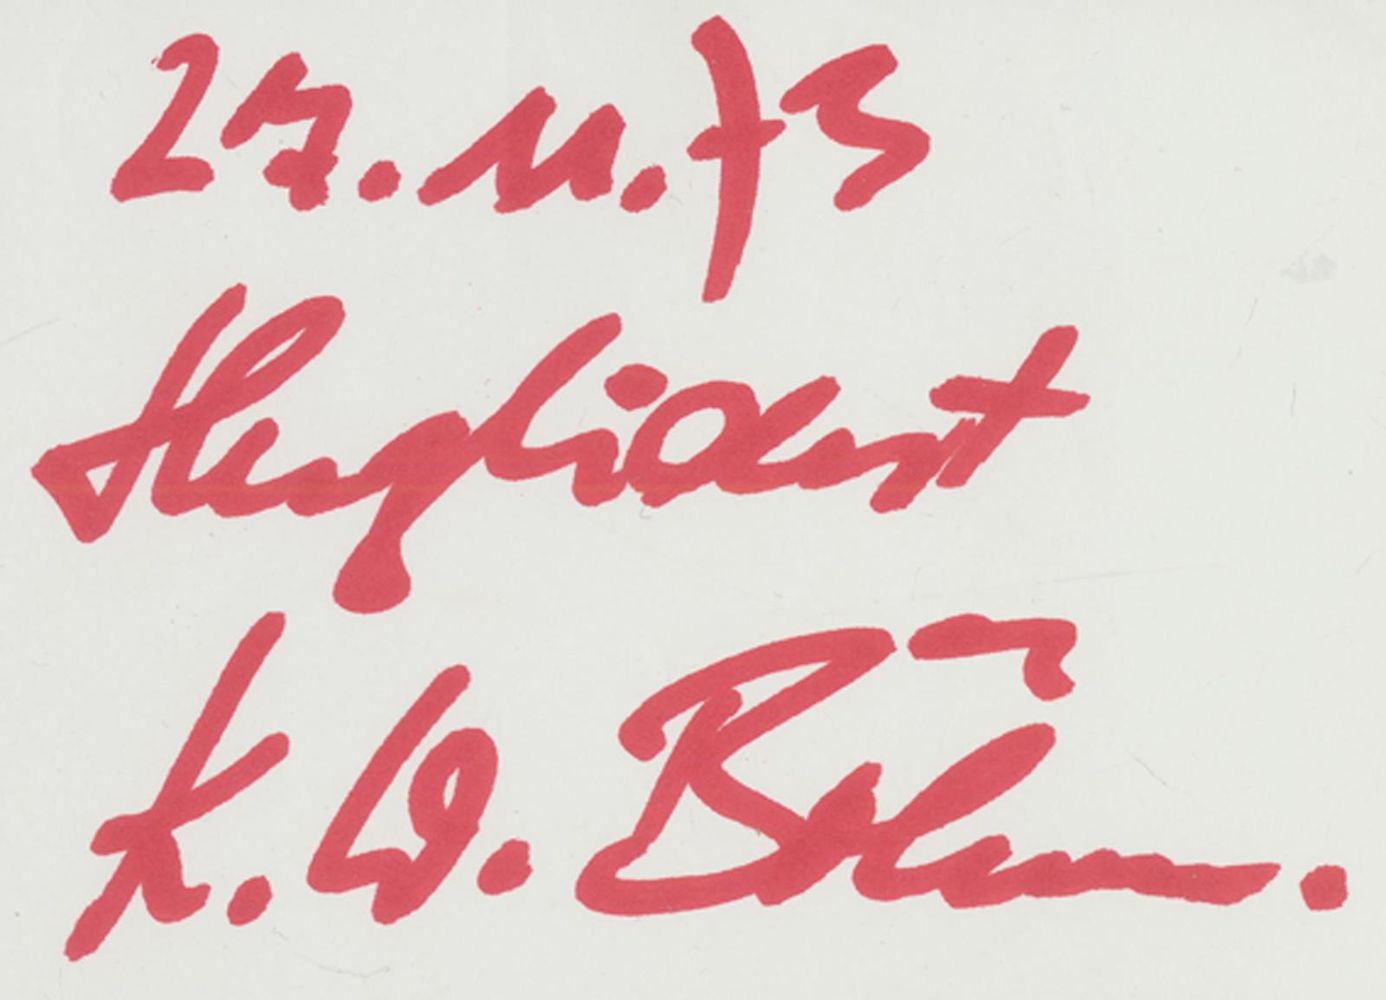 27.11.73
Herzlichst
K.W. Böhm.